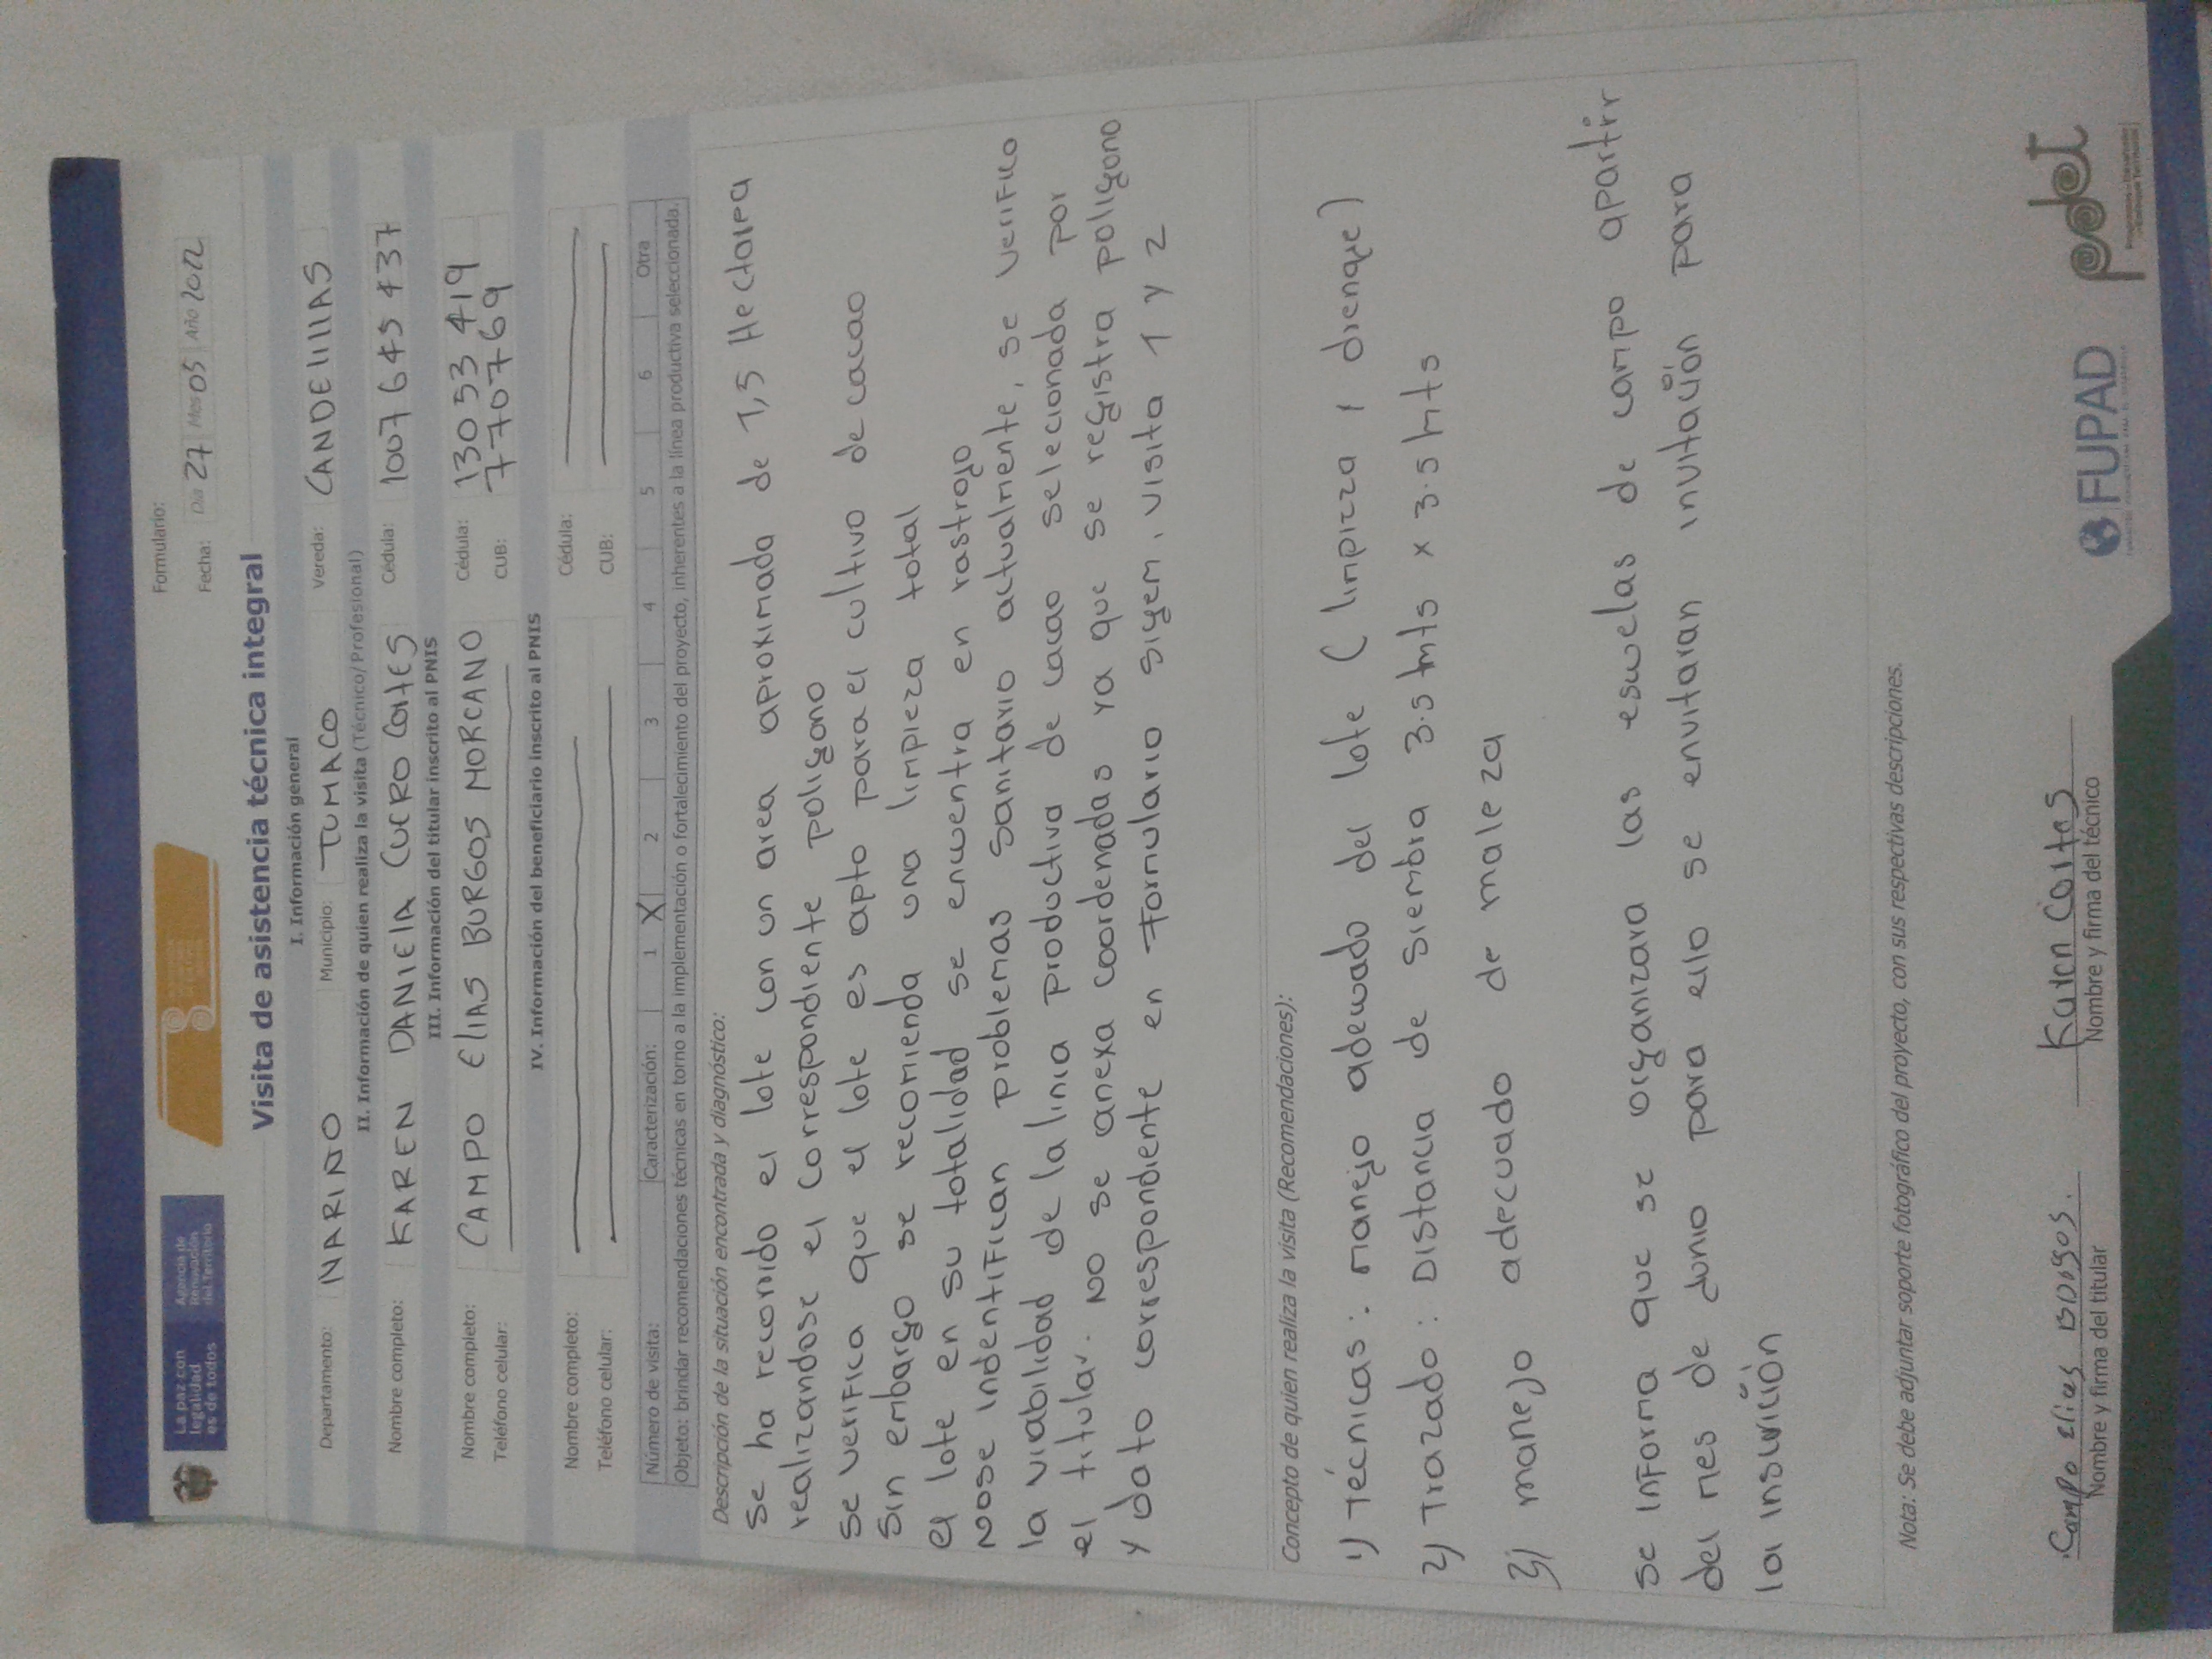 La paz con
legalidad
es de todos
Agencia de
Renovación
del Territorio
Formulario:
Fecha: Día 27 Mes 05 Año 2022
Visita de asistencia técnica integral
I. Información general
Departamento: NARINO Municipio: TUMACO Vereda: CANDElIllAS
II. Información de quien realiza la visita (Técnico/Profesional)
Nombre completo: KAREN DANIElA CUERO CortES Cédula: 1007645437
III. Información del titular inscrito al PNIS
Nombre completo: CAMPO ElIAS BURGOS MORCANO Cédula: 13053419
Teléfono celular: CUB: 7707769
IV. Información del beneficiario inscrito al PNIS
Nombre completo: Cédula:
Teléfono celular: CUB:
Número de visita: Caracterización: 1 X 2 3 4 5 6 Otra
Objeto: brindar recomendaciones técnicas en torno a la implementación o fortalecimiento del proyecto, inherentes a la línea productiva seleccionada.
Descripción de la situación encontrada y diagnóstico:
se ha recorrido el lote con un area aproximada de 1,5 Hectarea
realizandose el correspondiente poligono
se verifica que el lote es apto para el cultivo de cacao
sin embargo se recomienda una limpieza total
el lote en su totalidad se encuentra en rastrojo
nose indentifican problemas sanitario actualmente, se verifico
la viabilidad de la linia productiva de cacao selecionada por
el titular. no se anexa coordenadas ya que se registra poligono
y dato correspondiente en formulario sigem, visita 1 y 2
Concepto de quien realiza la visita (Recomendaciones):
1) Técnicas: manejo adecuado del lote (limpizza, drenage)
2) Trazado: Distancia de siembra 3.5 mts x 3.5 mts
3) manejo adecuado de maleza
se informa que se organizara las escuelas de campo apartir
del mes de Junio para ello se envitaran invitación para
la inscrición
Nota: Se debe adjuntar soporte fotográfico del proyecto, con sus respectivas descripciones.
Campo elias Burgos. Karen Cortes
Nombre y firma del titular Nombre y firma del técnico
FUPAD
pdet